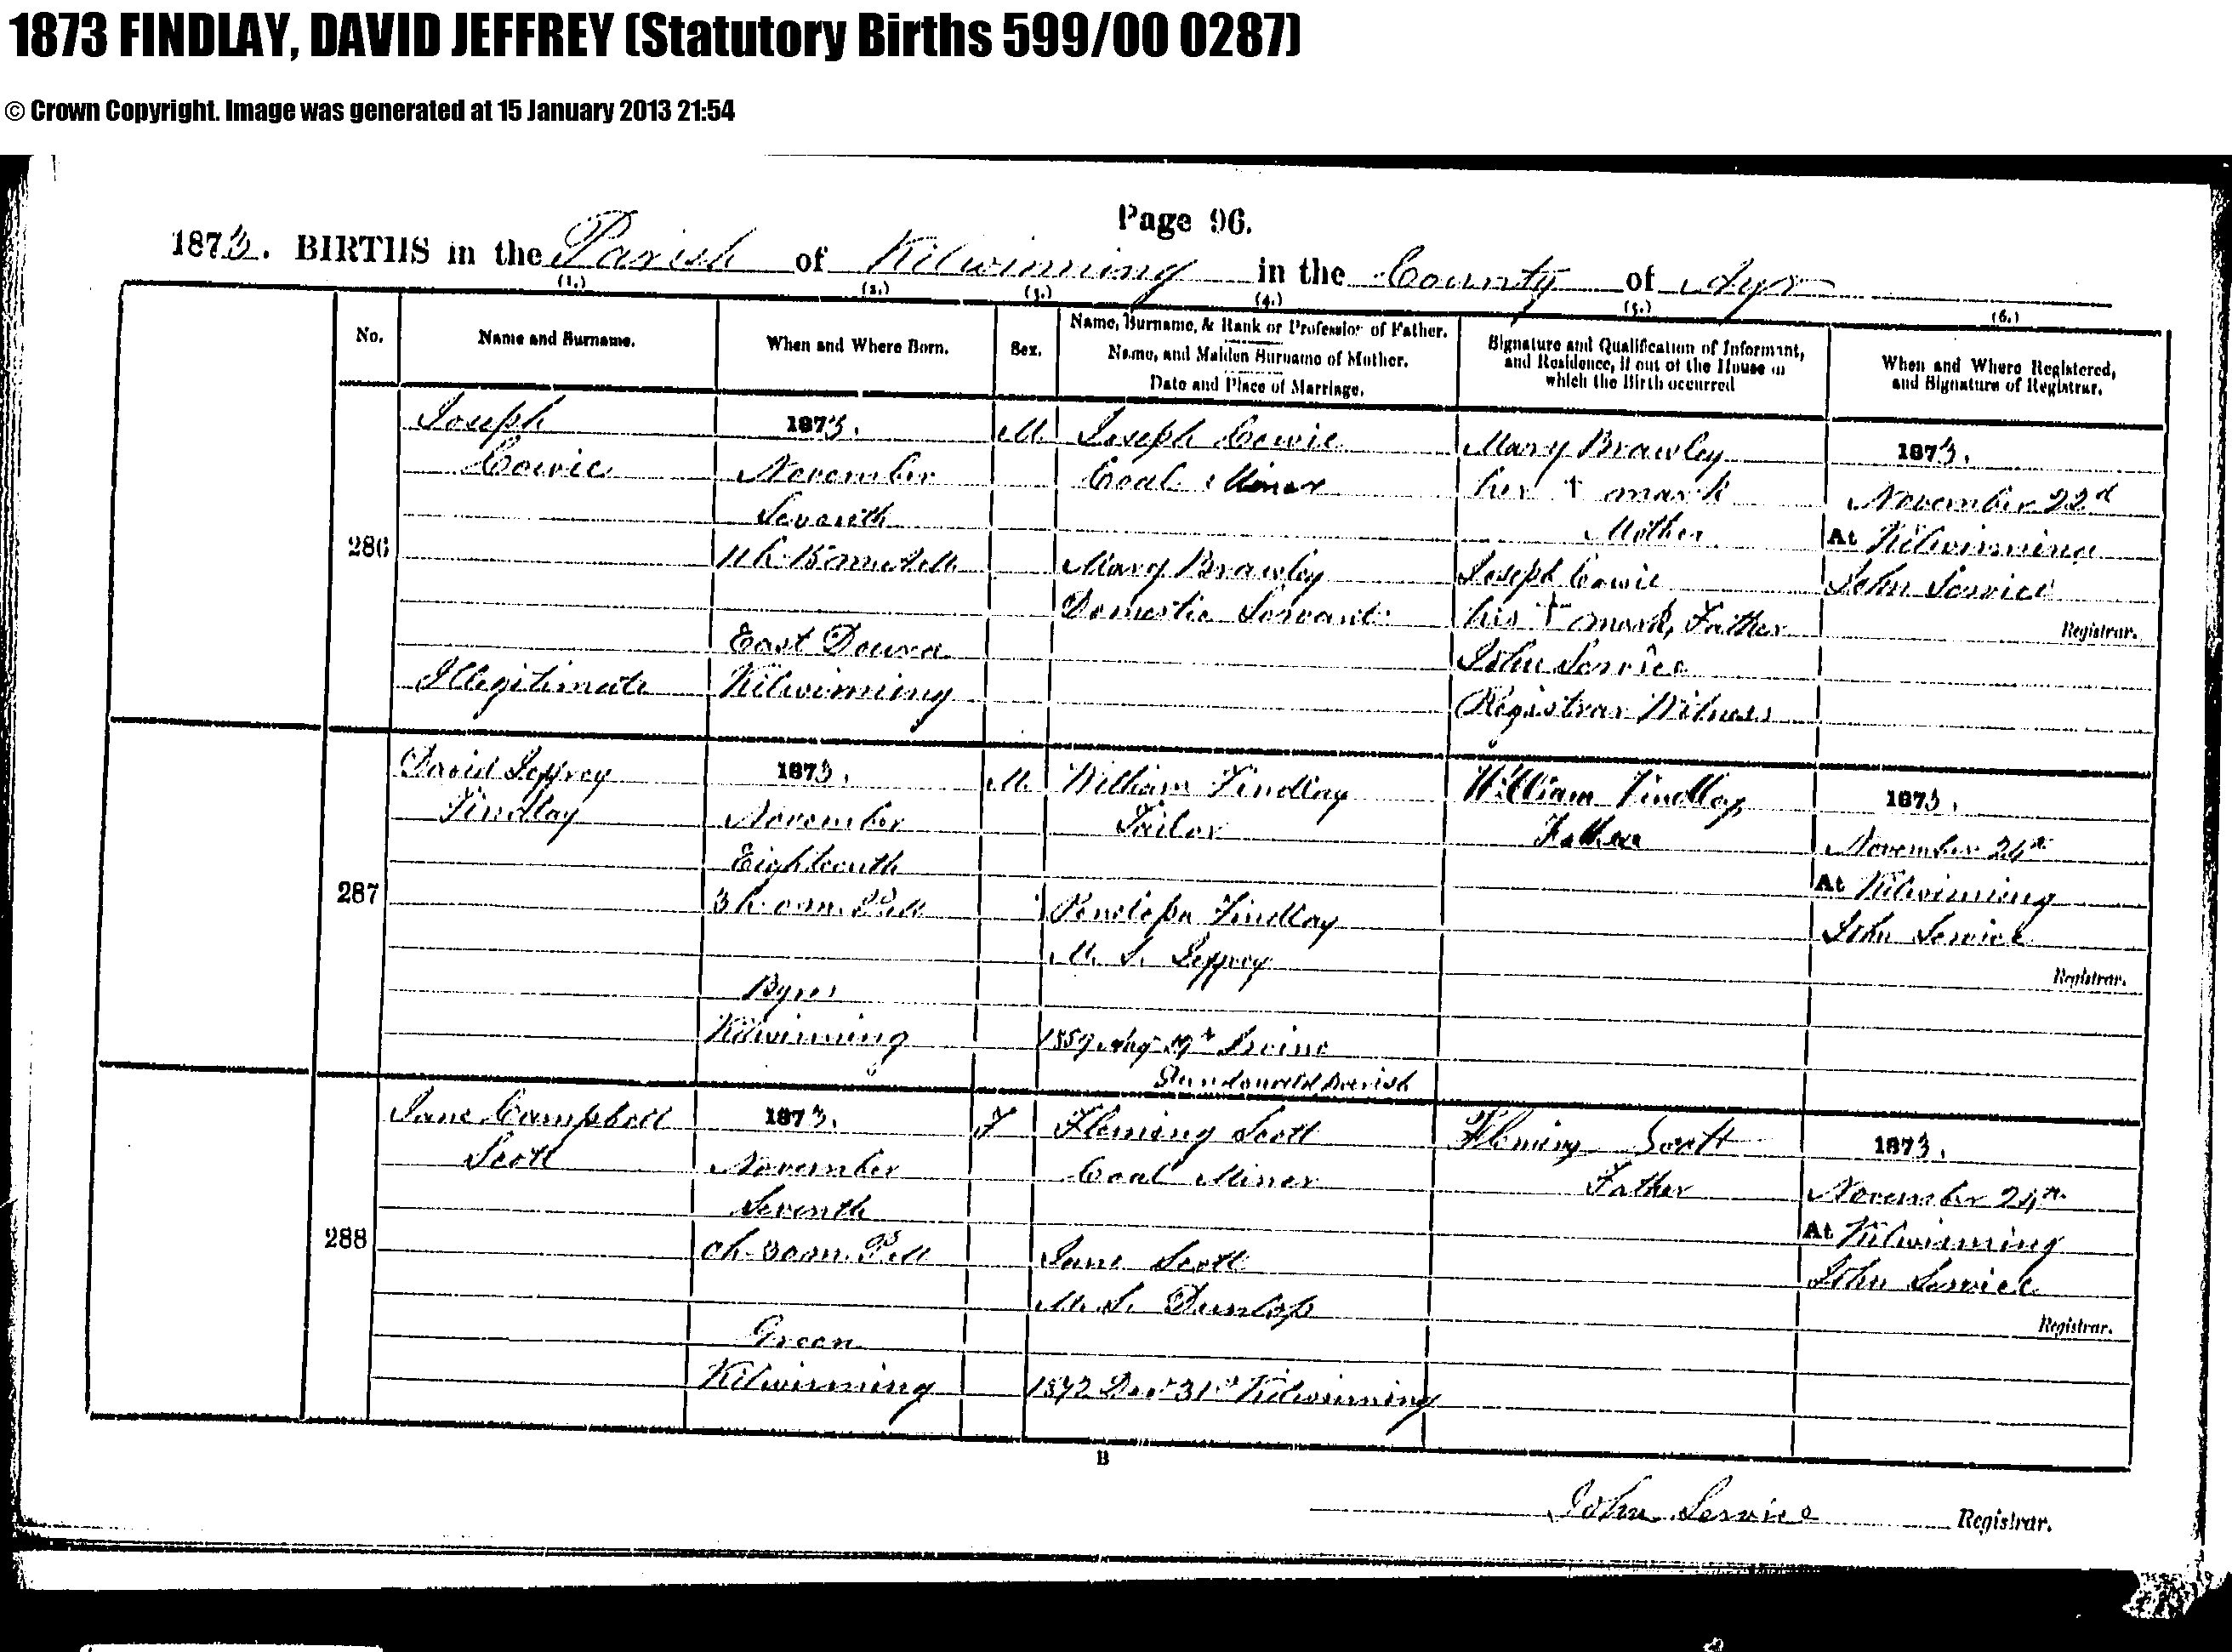 1873 FINDLAY, DAVID JEFFREY (Statutory Births 599/00 0287)
© Crown Copyright. Image was generated at 15 January 2013 21:54
Page 96.
1873. BIRTHS in the Parish of Kilwinning in the County of Ayr
(1.) (2.) (3.) (4.) (5.) (6.)
No.
Name and Surname.
When and Where Born.
Sex.
Name, Surname, & Rank or Profession of Father.
Name, and Maiden Surname of Mother.
Date and Place of Marriage.
Signature and Qualification of Informant,
and Residence, if out of the House in
which the Birth occurred
When and Where Registered,
and Signature of Registrar.
286
Joseph
Cowie
Illegitimate
1873.
November
Seventh
East Doura
Kilwinning
M.
Joseph Cowie
Coal Miner
Mary Brawley
Domestic Servant
Mary Brawley
her + mark
Mother
Joseph Cowie
his + mark, Father
John Service
Registrar Witness
1873.
November 22d
At Kilwinning
John Service
Registrar.
287
David Jeffrey
Findlay
1873.
November
Eighteenth
3 h. 0 m. P.M.
Byres
Kilwinning
M.
William Findlay
Tailor
Penelope Findlay
M. S. Jeffrey
1859 Irvine
Dundonald Parish
William Findlay
Father
1873.
November 24th
At Kilwinning
John Service
Registrar.
288
Jane Campbell
Scott
1873.
November
Seventh
0h. 30m. P.M.
Green
Kilwinning
F
Fleming Scott
Coal Miner
Jane Scott
M. S. Dunlop
1872 Decr 31st Kilwinning
Fleming Scott
Father
1873.
November 24th
At Kilwinning
John Service
Registrar.
B
John Service Registrar.